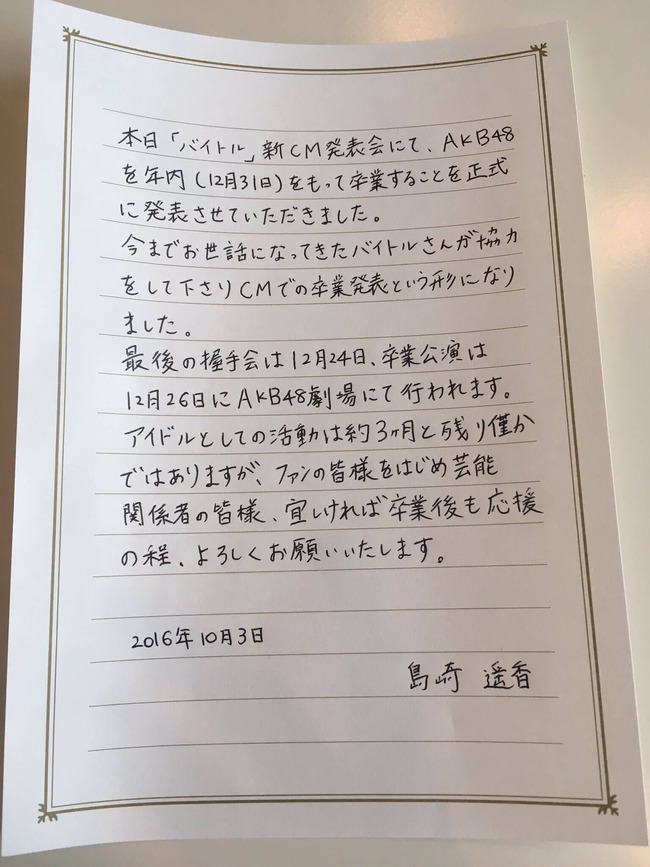 本日「バイトル」新CM発表会にて、AKB48
を年内(12月31日)をもって卒業することを正式
に発表させていただきました。
今までお世話になってきたバイトルさんが協力
をして下さりCMでの卒業発表という形になり
ました。
最後の握手会は12月24日、卒業公演は
12月26日にAKB48劇場にて行われます。
アイドルとしての活動は約3ヶ月と残り僅か
ではありますが、ファンの皆様をはじめ芸能
関係者の皆様、宜しければ卒業後も応援
の程、よろしくお願いいたします。
2016年10月3日
島崎 遥香